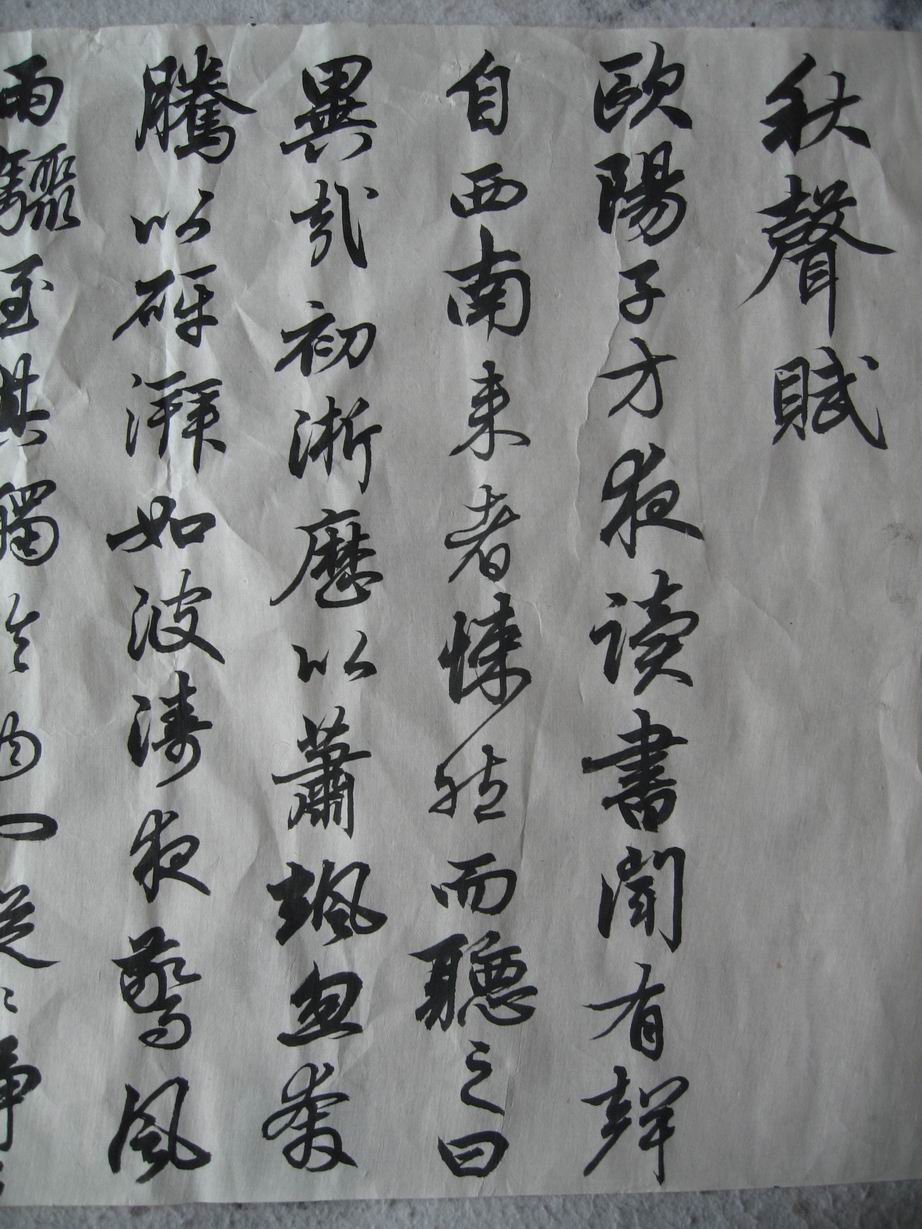 秋聲賦
歐陽子方夜讀書聞有聲
自西南來者悚然而聽之曰
異哉初淅歷以蕭颯忽奔
騰以砰湃如波濤夜驚風
雨驟至其觸於物也